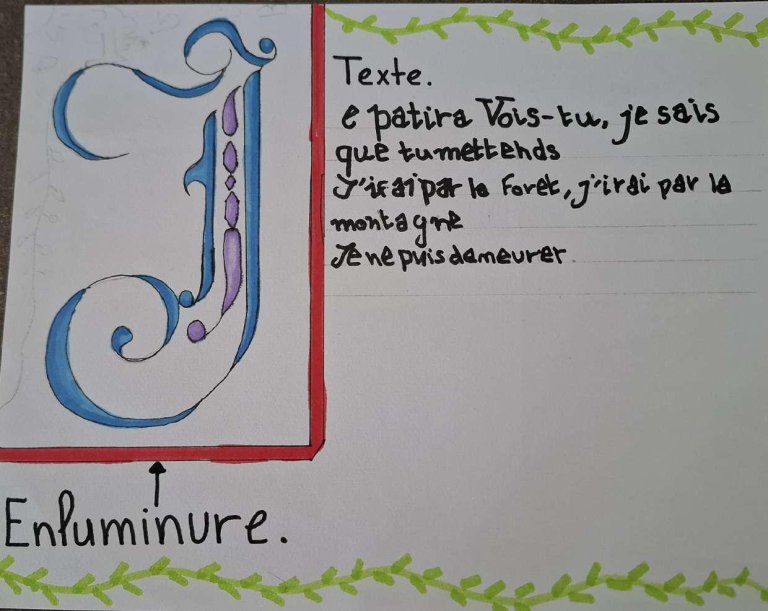 J
Texte.
e patira Vois-tu, je sais
que tu mettends
J'irai par la Foret, j'irai par la
montagne
Je ne puis demeurer
Enluminure.